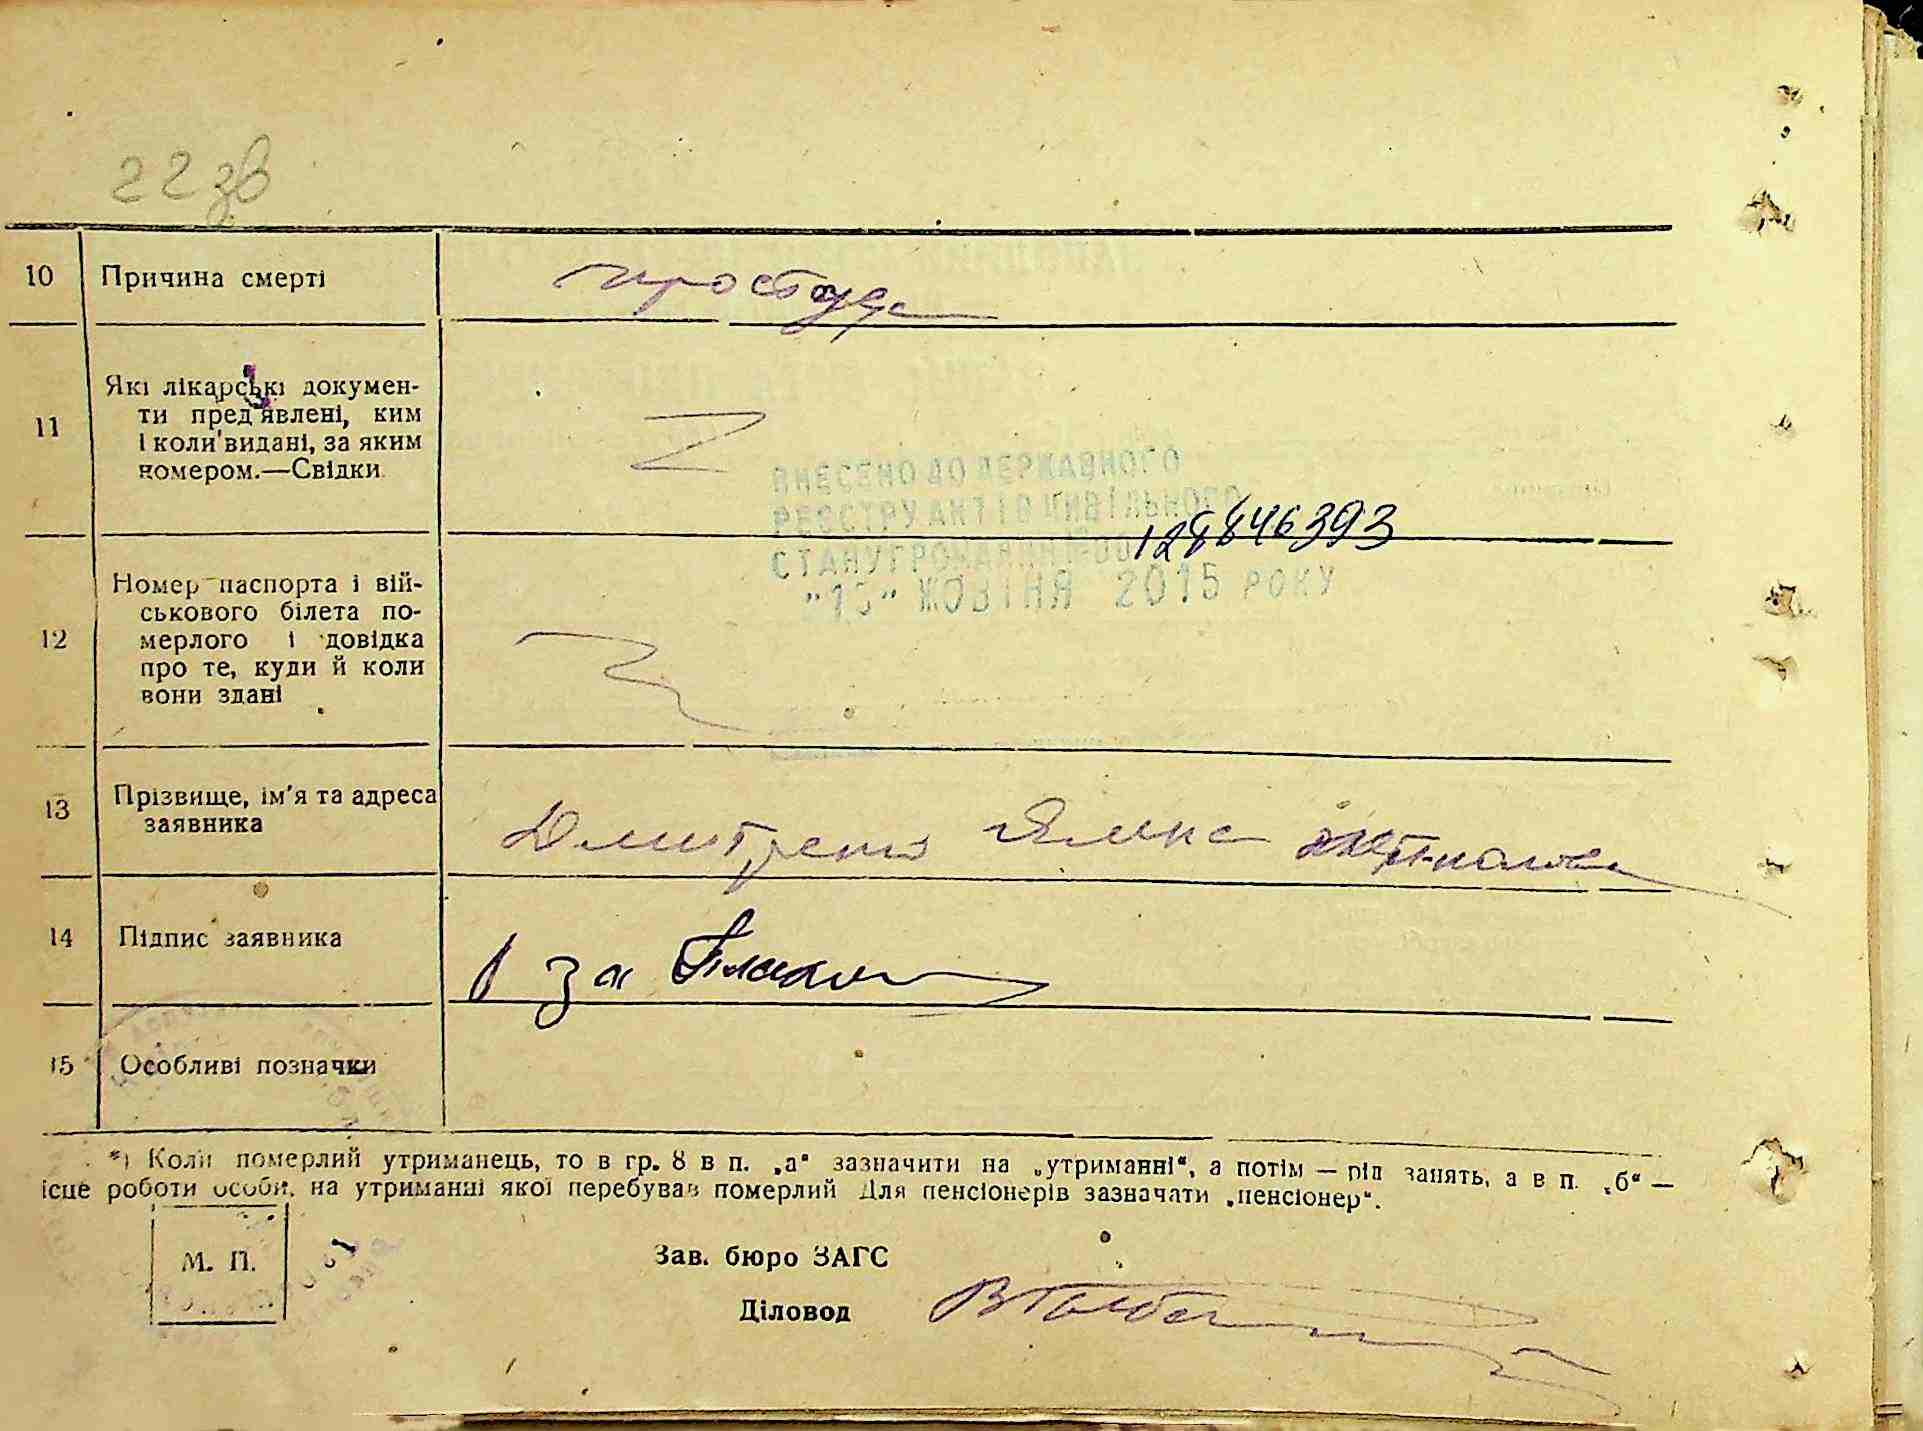 22 зв
10 Причина смерті простуда
11 Які лікарські докумен-
ти пред'явлені, ким
і коли видані, за яким
номером.—Свідки
ВНЕСЕНО ДО ДЕРЖАВНОГО
РЕЄСТРУ АКТІВ ЦИВІЛЬНОГО
СТАНУ ГРОМАДЯН 128846393
"15" ЖОВТНЯ 2015 РОКУ
12 Номер паспорта і вій-
ськового білета по-
мерлого і довідка
про те, куди й коли
вони здані
13 Прізвище, ім'я та адреса
заявника
Дмитренко
14 Підпис заявника за
15 Особливі позначки
*) Коли померлий утриманець, то в гр. 8 в п. „а“ зазначити на „утриманні“, а потім — рід занять, а в п. „б“ —
ісце роботи особи, на утриманні якої перебував померлий Для пенсіонерів зазначати „пенсіонер“.
М. П.
Зав. бюро ЗАГС
Діловод